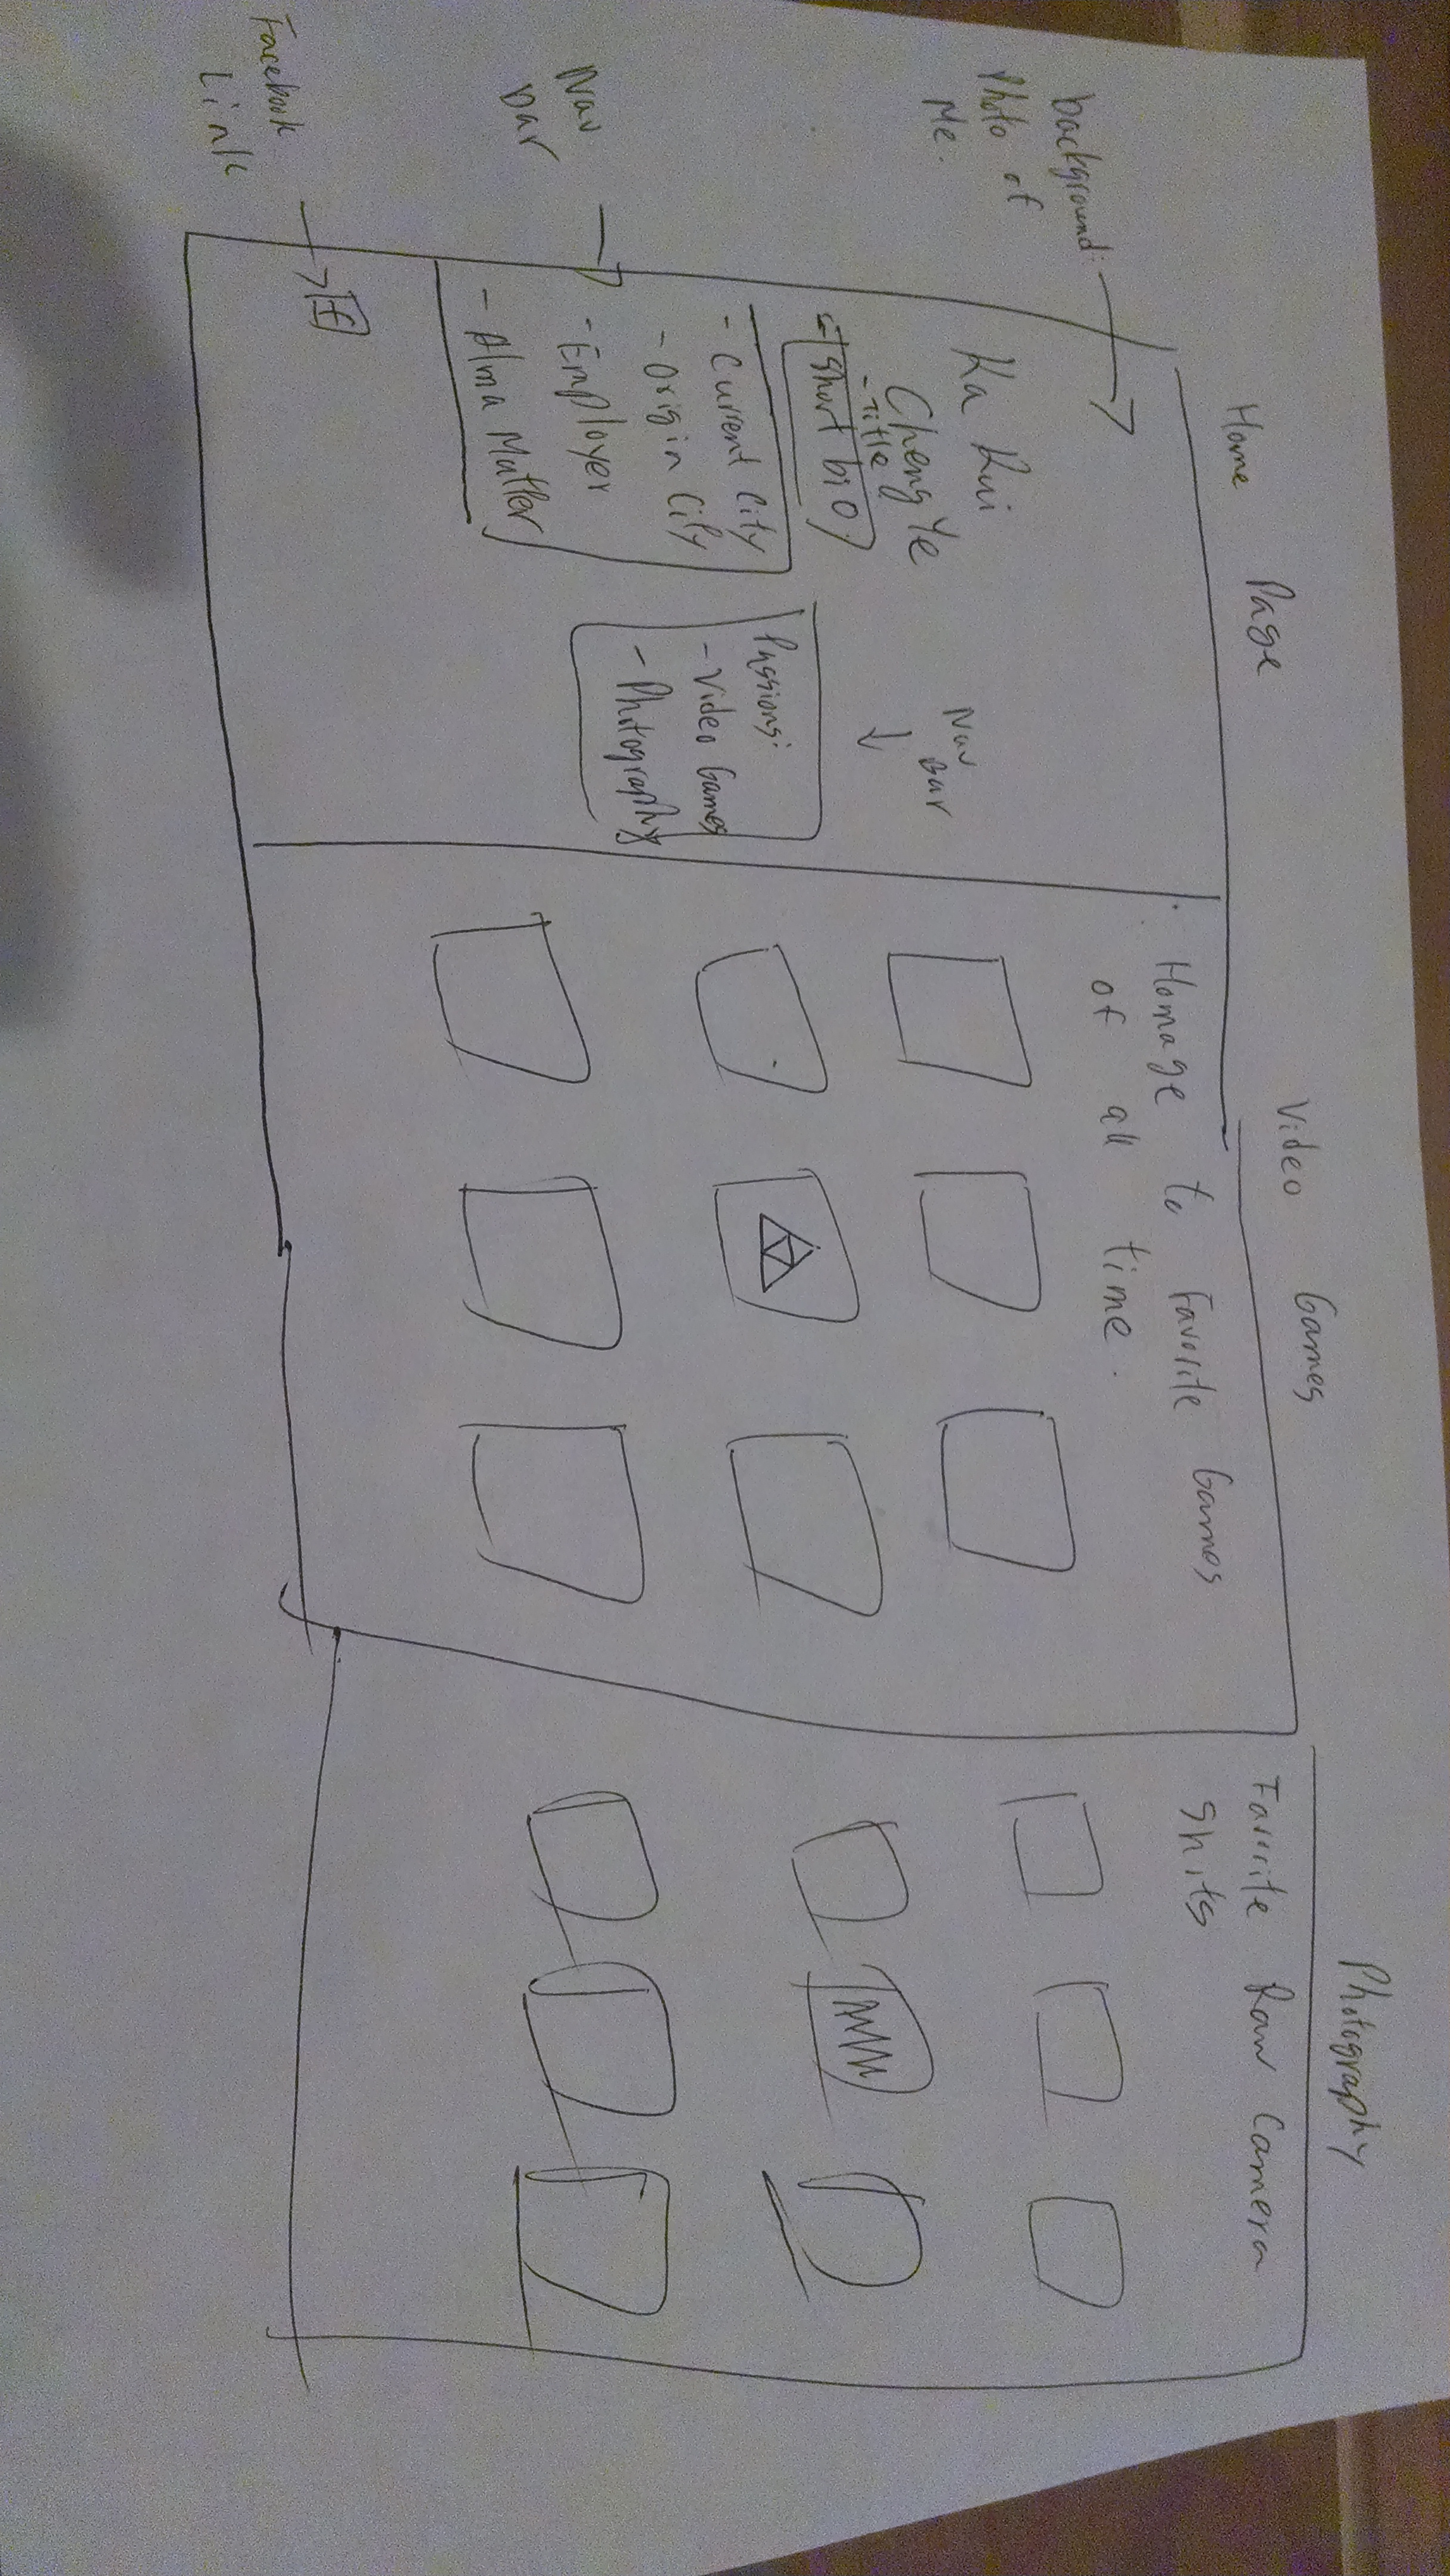 Home Page
background:
Photo of
Me.
Ka Kui
Cheng Ye
- Title
Short bio
Nav
Bar
Nav
bar
- Current City
- Origin City
- Employer
- Alma Matter
Passions:
- Video Games
- Photography
Facebook
Link
f
Video Games
Homage to Favorite Games
of all time.
Photography
Favorite Raw Camera